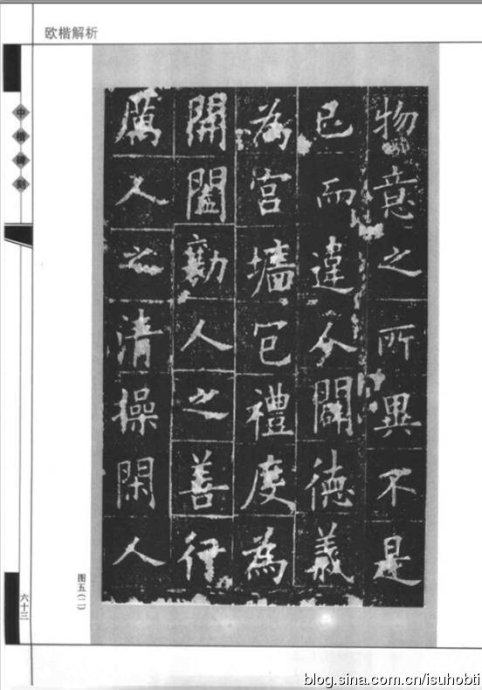 欧楷解析
物意之所異不是
已而違闢德義
為宮墻包禮度為
開闔勸人之善行
厲人之清操閑人
图五(二)
六十三
blog.sina.com.cn/isuhobti